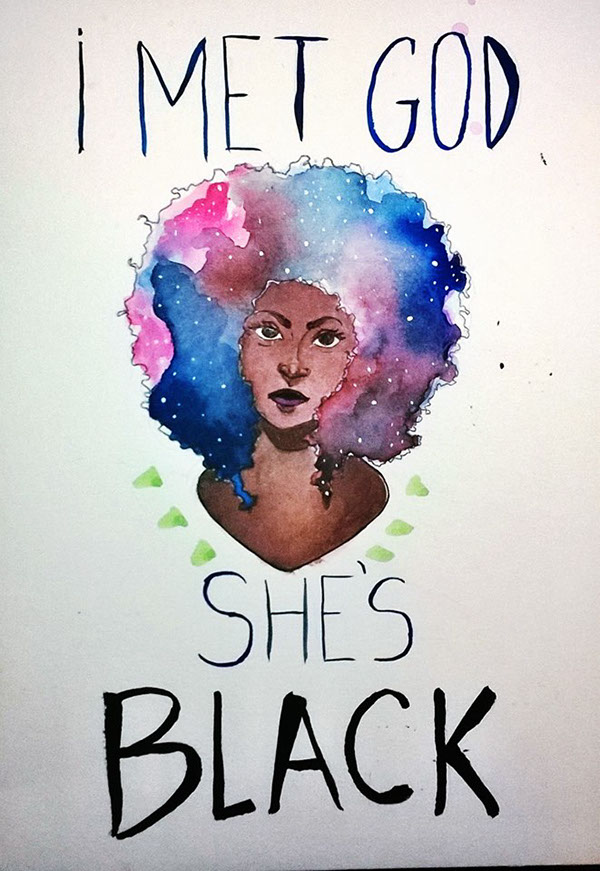 i MET GOD
SHE'S
BLACK